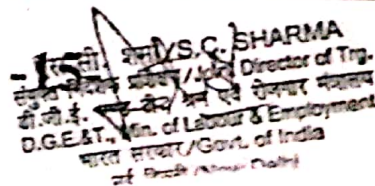 शर्मा/S.C. SHARMA
संयुक्त निदेशक प्रशिक्षण/Joint Director of Trg.
डी.जी.ई. श्रम एवं रोजगार मंत्रालय
D.G.E.&T., Min. of Labour & Employment
भारत सरकार/Govt. of India
नई दिल्ली/New Delhi